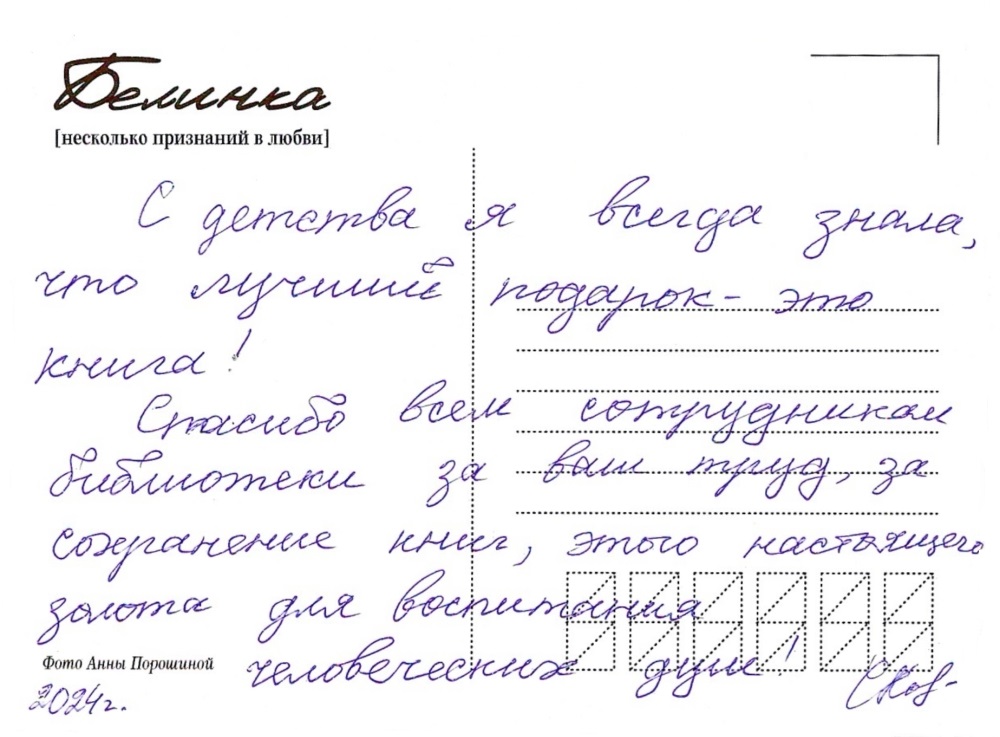 Белинка
[несколько признаний в любви]
С детства я всегда знала,
что лучший подарок - это
книга!
Спасибо всем сотрудникам
библиотеки за ваш труд, за
сохранение книг, этого настоящего
золота для воспитания
человеческих душ!
Фото Анны Порошиной
2024г.